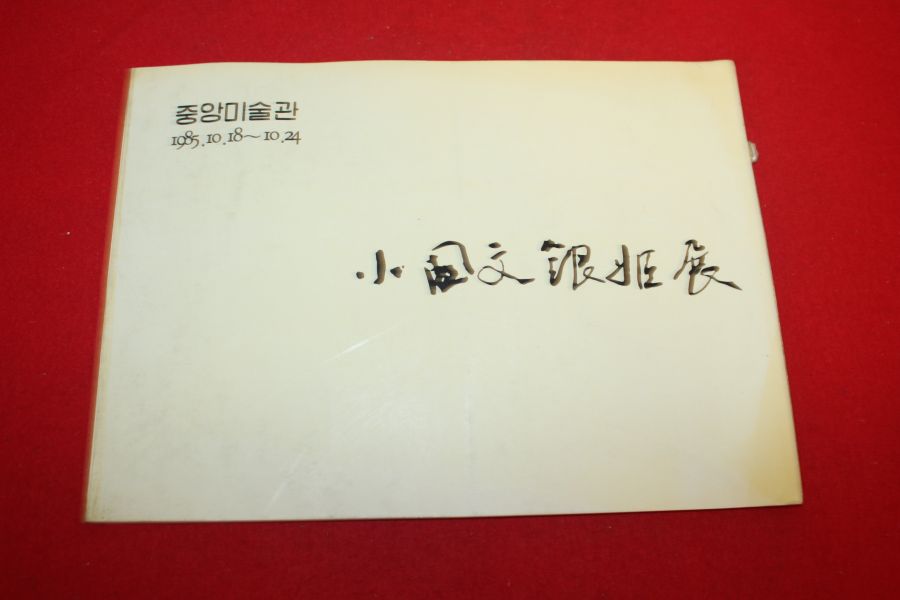 중앙미술관
1985.10.18~10.24
小園文銀姬展